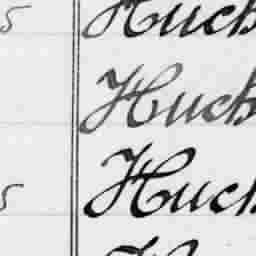 5 Huck
Huck
5 Huck